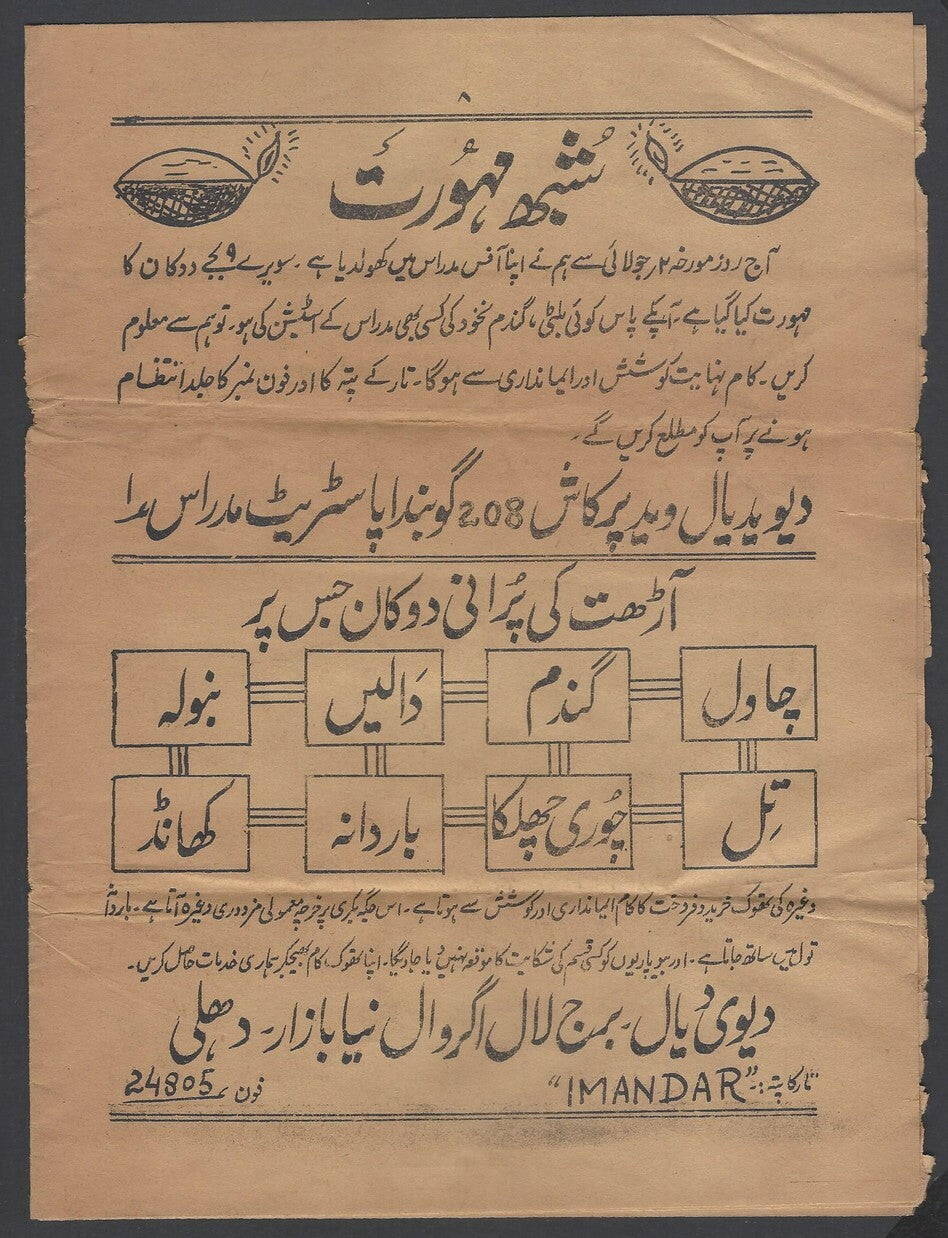 ۸
شُبھ مہُورَت
آج روز مورخہ ۲ر جولائی سے ہم نے اپنا آفس مدراس میں کھولدیا ہے۔ سویرے ۹ بجے دوکان کا
مہورت کیا گیا ہے۔ آپکے پاس کوئی بلٹی، گندم نخود کی کسی بھی مدراس کے اسٹیشن کی ہو۔ تو ہم سے معلوم
کریں۔ کام نہایت کوشش اور ایمانداری سے ہوگا۔ تار کے پتہ کا اور فون نمبر کا جلد انتظام
ہونے پر آپ کو مطلع کریں گے۔
دیویدیال وید پرکاش 208 گوبنداپا سٹریٹ مدراس ۱
آڑھت کی پُرانی دوکان جس پر
چاول گندم دَالیں بنولہ
تِل چُوری چھلکا باردانہ کھانڈ
وغیرہ کی تھوک خرید و فروخت کا کام ایمانداری اور کوشش سے ہوتا ہے۔ اس جگہ بکری پر خرچہ معمولی مزدوری وغیرہ آتا ہے۔ باردانہ
تول میں ساتھ جاتا ہے۔ اور بیوپاریوں کو کسی قسم کی شکایت کا موقعہ نہیں دیا جاویگا۔ اپنا تھوک کام بھیجکر ہماری خدمات حاصل کریں۔
دیوی دیال۔ برج لال اگروال نیا بازار۔ دھلی
تار کا پتہ:۔ "IMANDAR" فون 24805